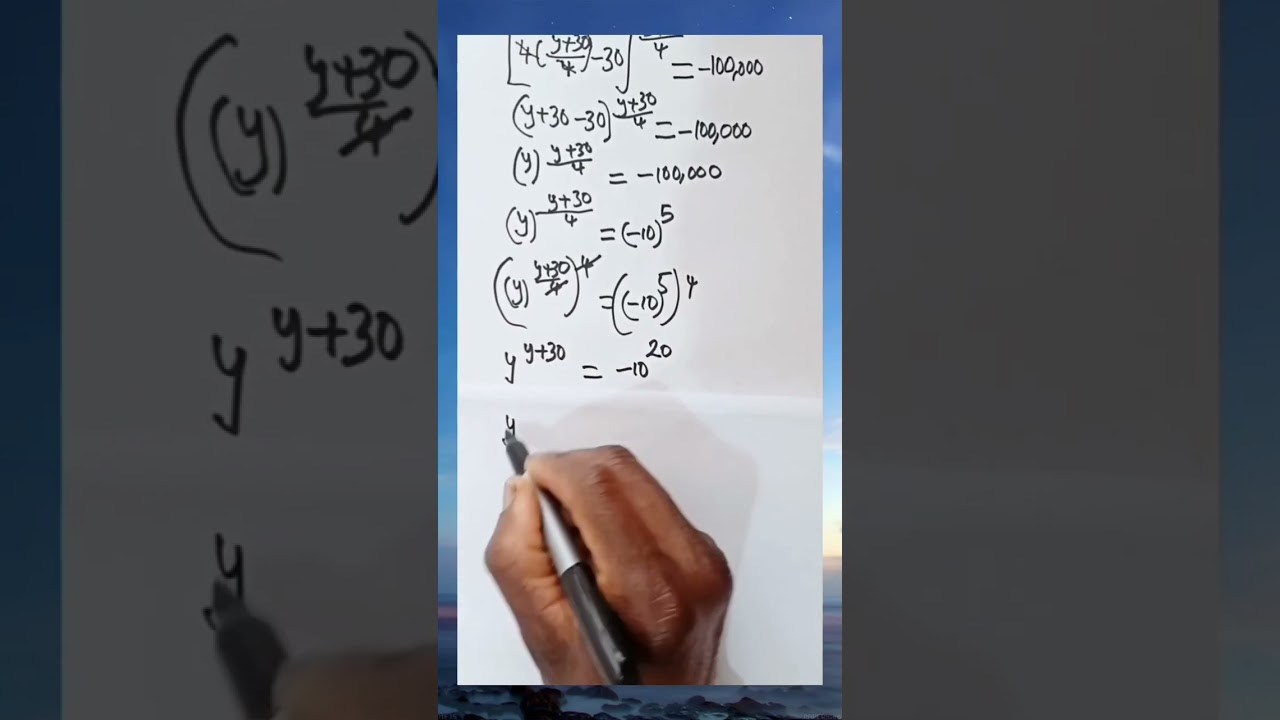 [4(y+30/4)-30]^(y+30)/4 = -100,000
(y+30-30)^(y+30)/4 = -100,000
(y)^(y+30)/4 = -100,000
(y)^(y+30)/4 = (-10)^5
((y)^(y+30)/4)^4 = ((-10)^5)^4
y^(y+30) = -10^20
y